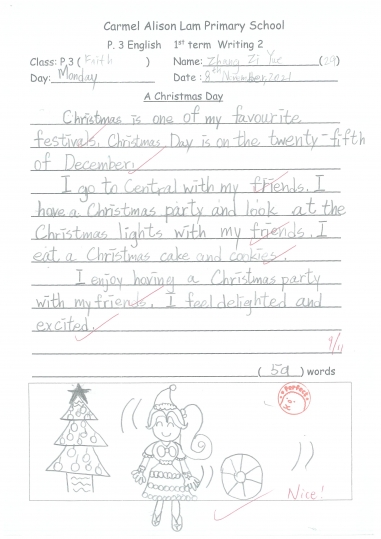 Carmel Alison Lam Primary School
P. 3 English 1st term Writing 2
Class: P.3 ( Faith ) Name: Zhang Zi Yue (29)
Day: Monday Date : 8th November, 2021
A Christmas Day
Christmas is one of my favourite
festivals. Christmas Day is on the twenty-fifth
of December.
I go to Central with my friends. I
have a Christmas party and look at the
Christmas lights with my friends. I
eat a Christmas cake and cookies.
I enjoy having a Christmas party
with my friends. I feel delighted and
excited.
9/11
( 59 ) words
Perfect
Nice!